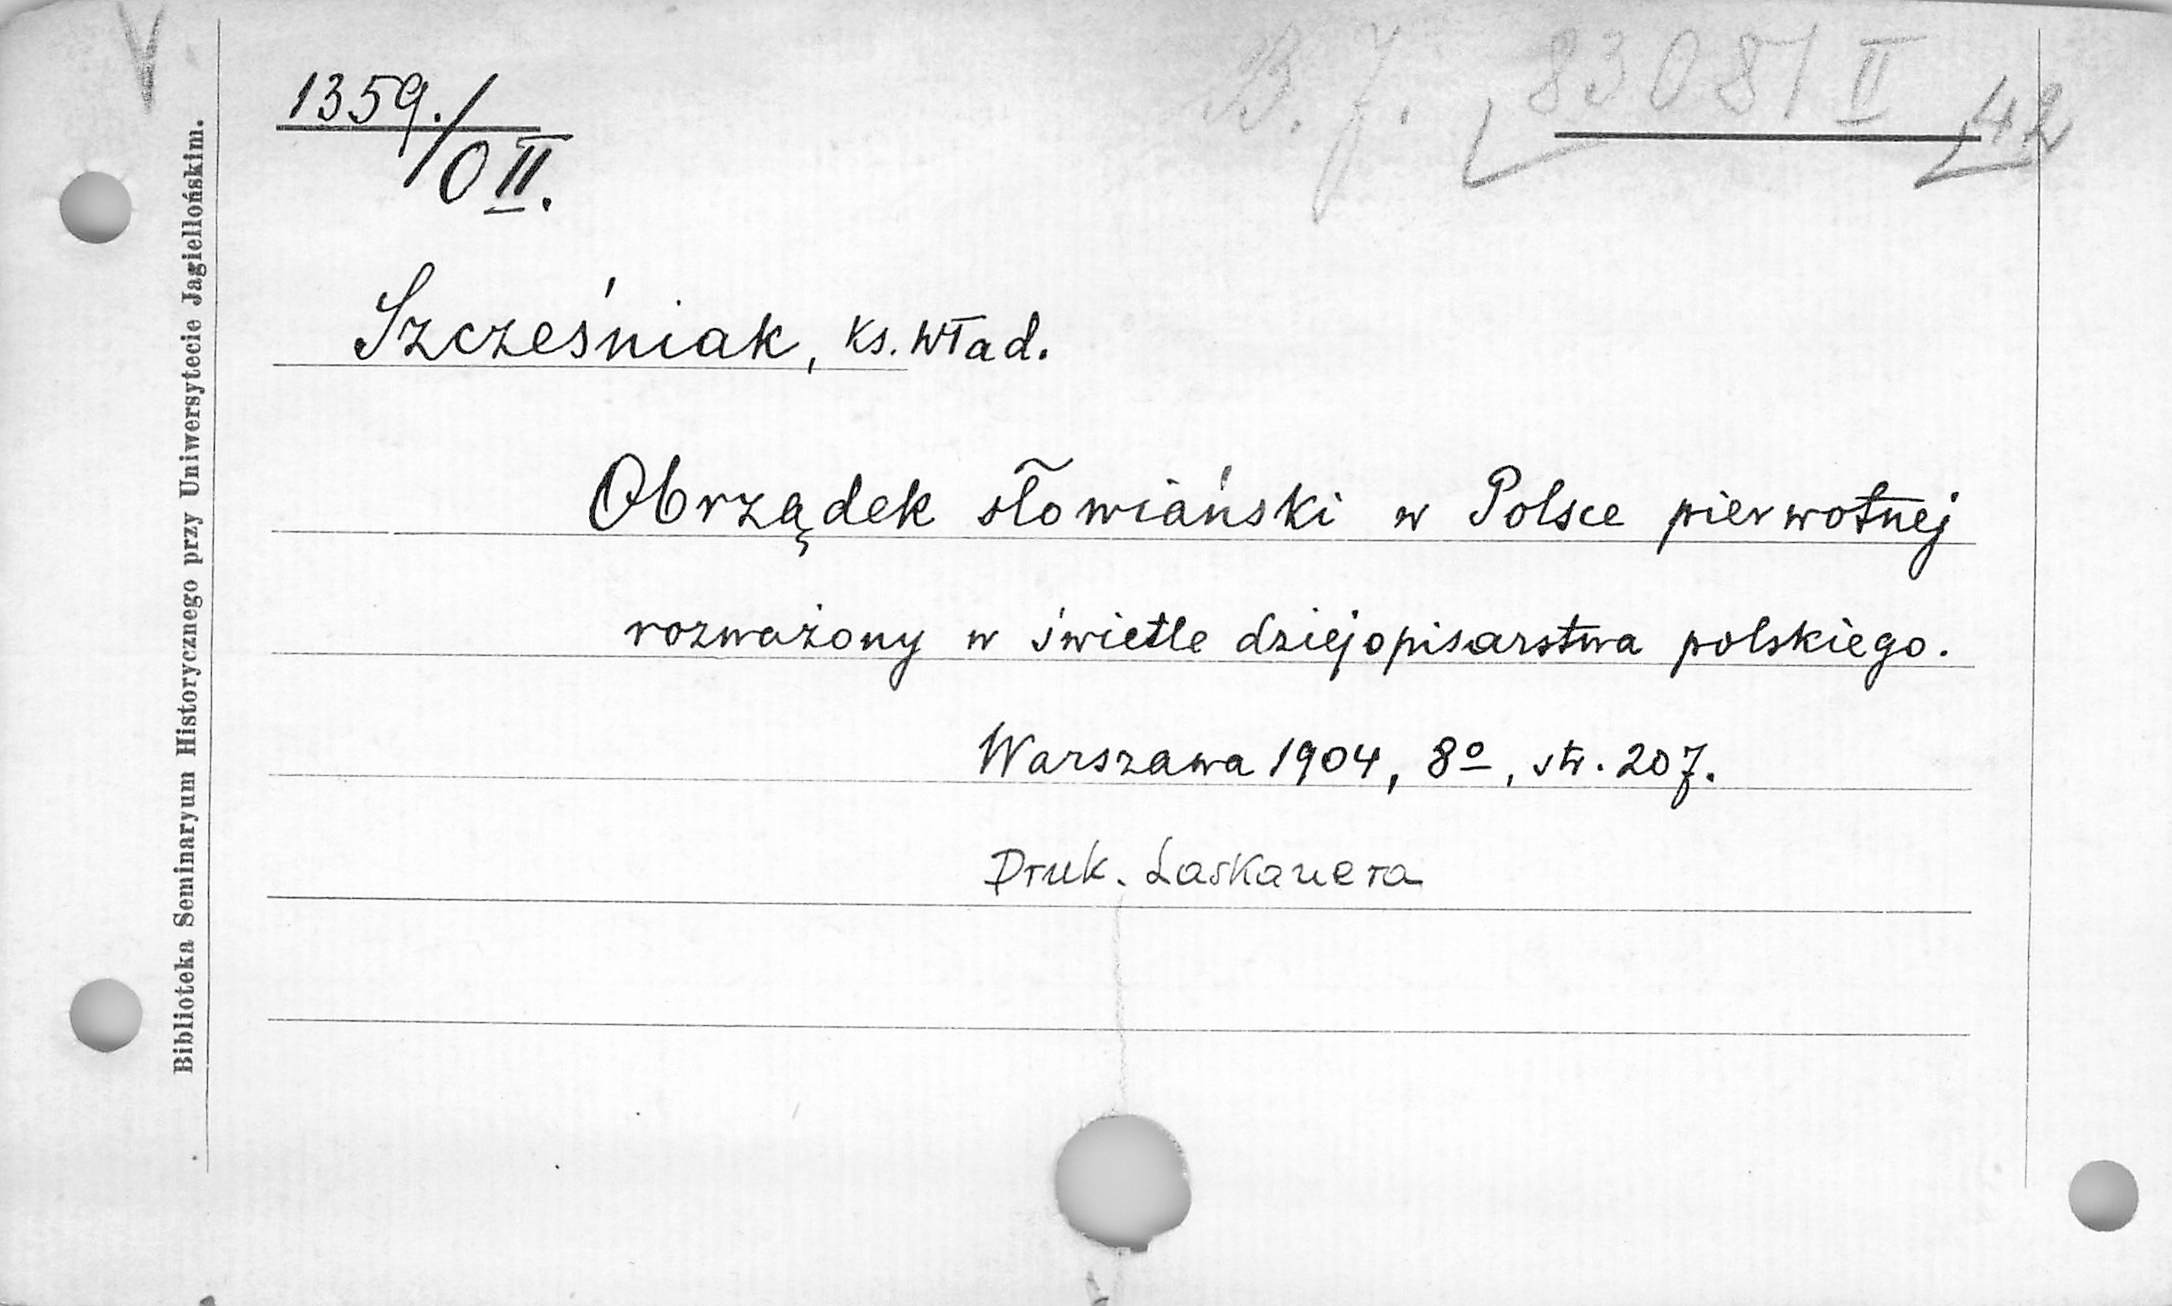 1359./OII.
B. J. 83081 II
42
Szcześniak, ks. Wład.
Obrządek słowiański w Polsce pierwotnej
rozważony w świetle dziejopisarstwa polskiego.
Warszawa 1904, 8o, str. 207.
Druk. Laskauera
Biblioteka Seminaryum Historycznego przy Uniwersytecie Jagiellońskim.